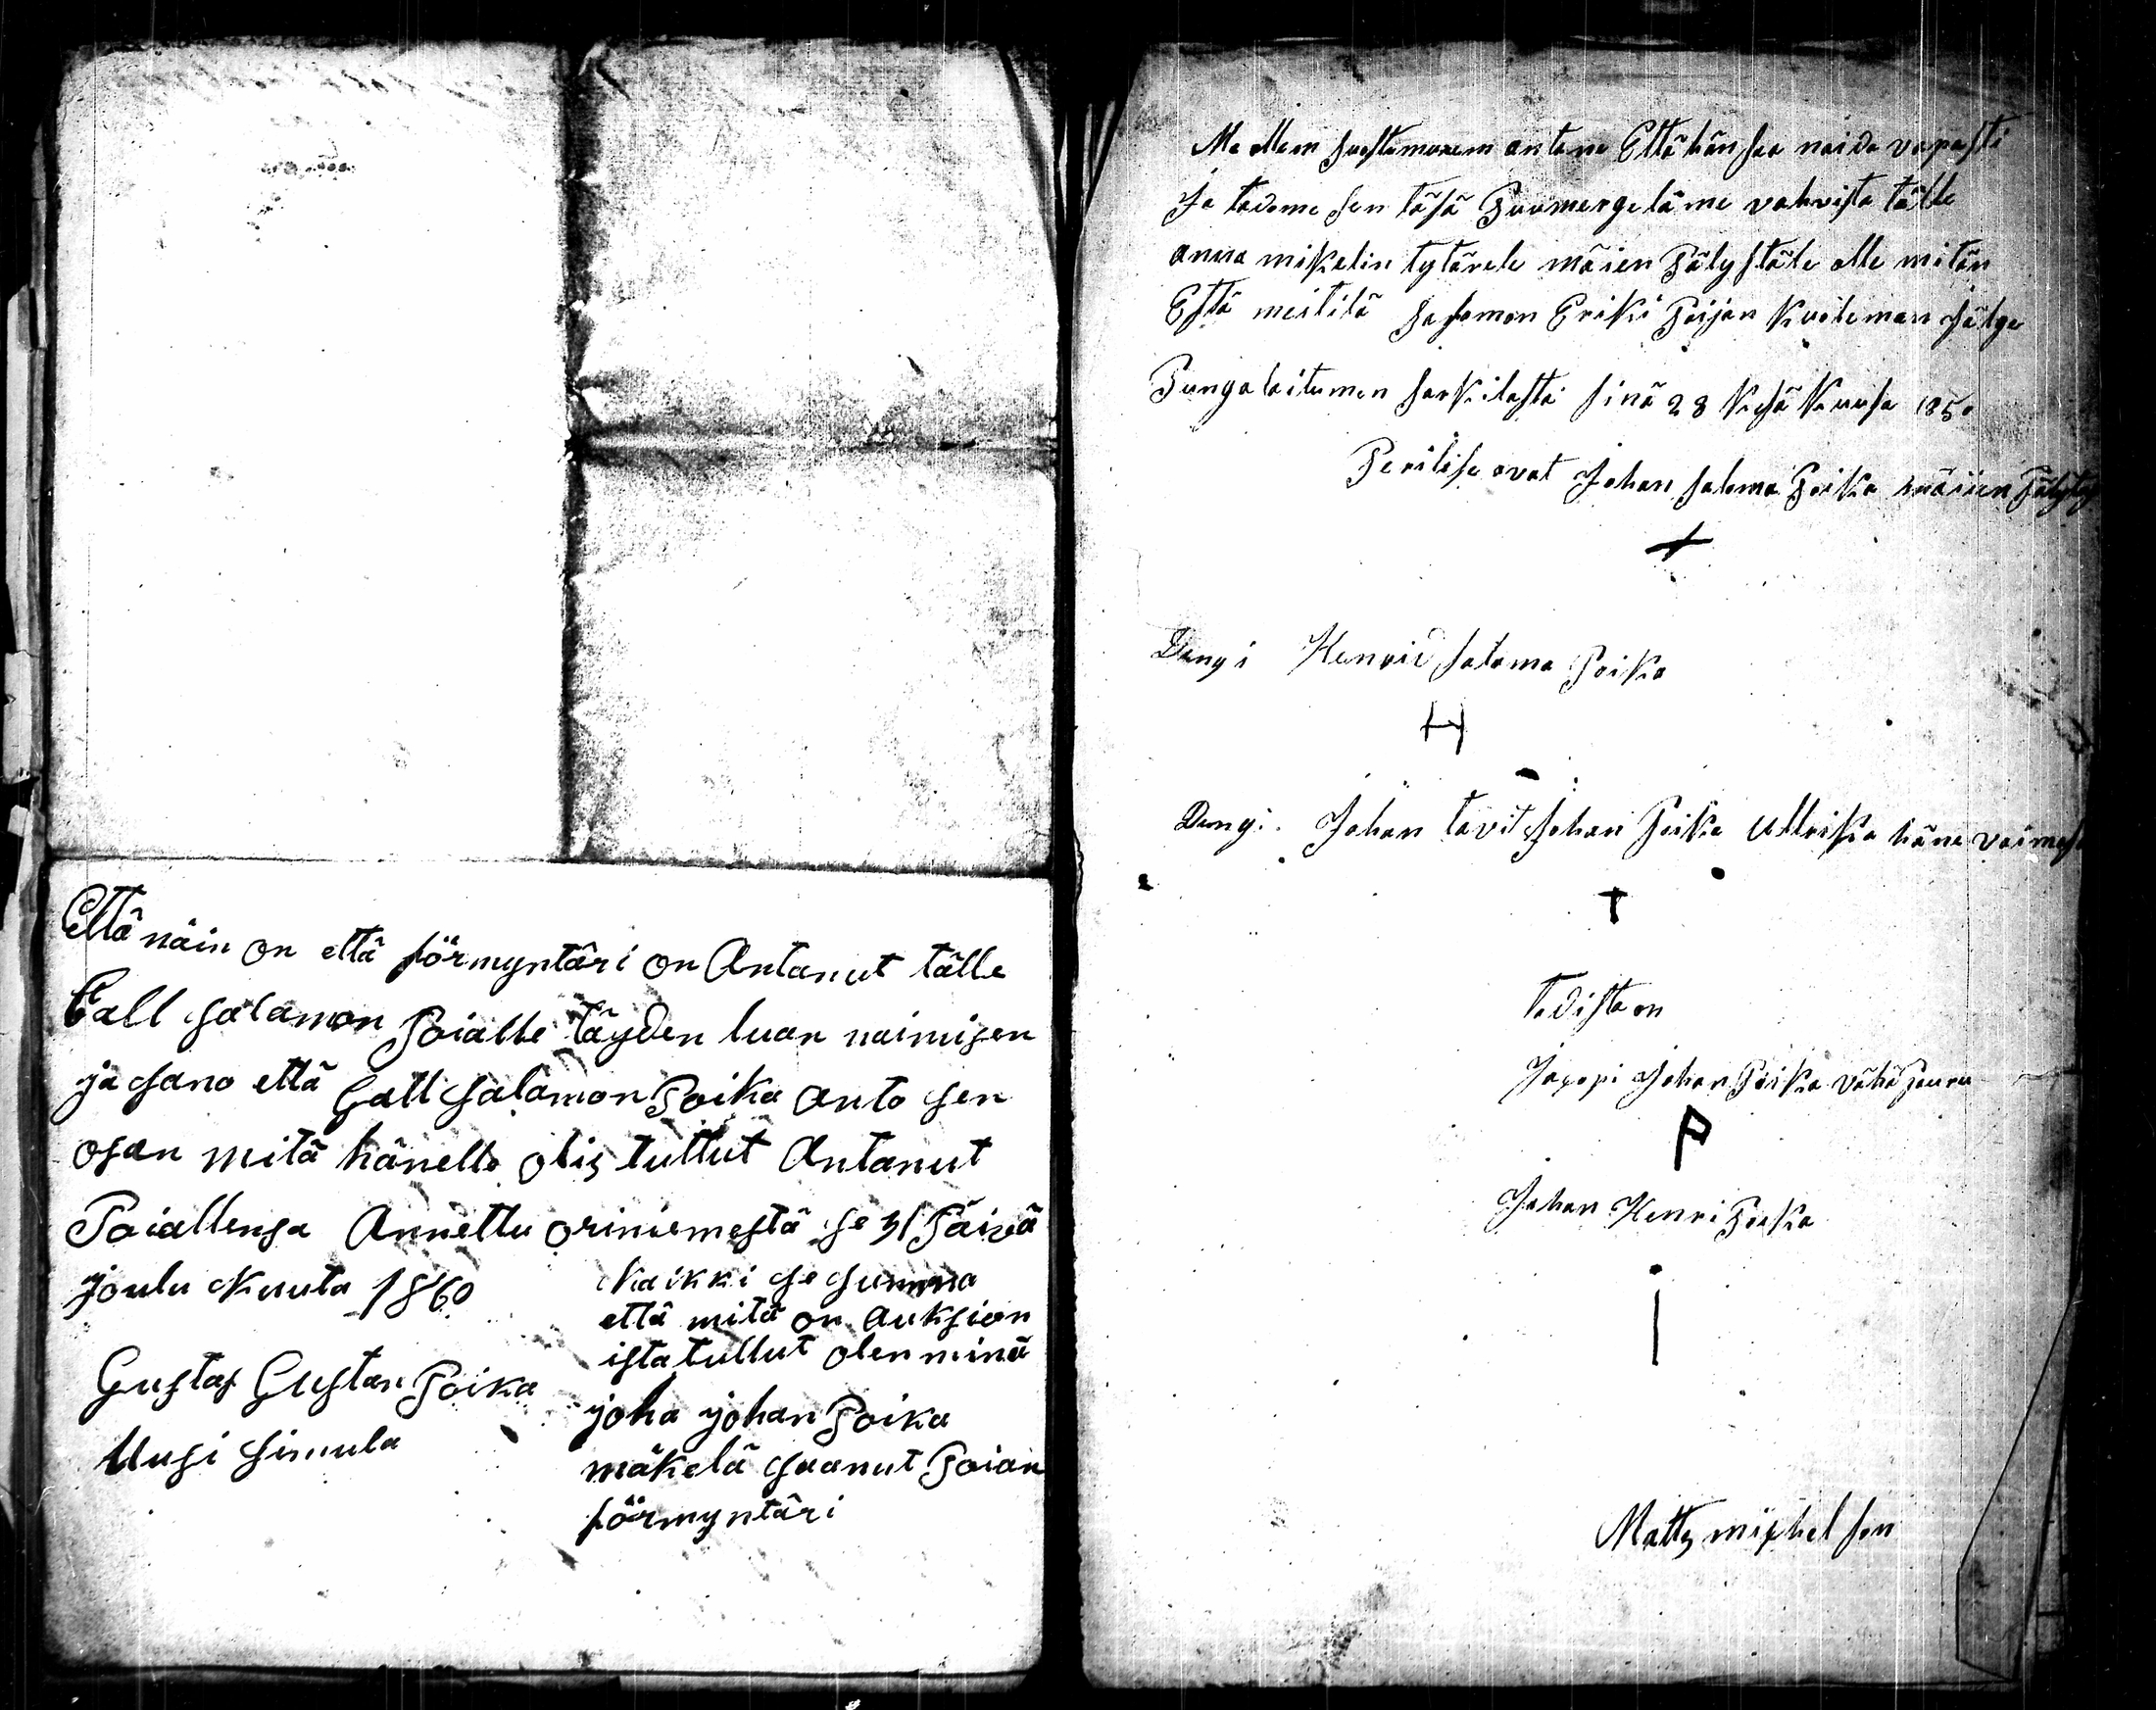 Että näin on ettäförmyntäri on Antanut tälle
Call salamon Poialle täyden luan naimisen
ja sano että Call salamon Poika anto sen
osan mitä hänelle olis tullut Antanut
Poiallensa Annettu oriniemestä se 31 Päivä
joulu Kuuta 1860
Gustaf Gustan Poika
Uusi simula
Kaikki se summa
että mitä on auksion
ista tullut olen minä
joha johan Poika
mäkelä saanut Poian
förmyntäri
Me ollem suostumuxem antane Että hän saa naida vapasti
Ja todame sen täsä Puumergeläme vahvista tälle
anna mikelin tytärele mäien Pälystäle olle mitän
Estä meitilä salomon Eriki Poijan Kuoleman jälge
Pungalaitumen sarkilasta sinä 28 Kesä Kuusa 1850
Perilise ovat Johan saloma Poika mäiien
Dungi Henrid saloma Poika
H
Dungi. Johan tavit Johan Poika Ullrika häne
T
todista on
Jaxopi Johan Poika vähä
P
Johan Henri Poika
Matts mixhel son